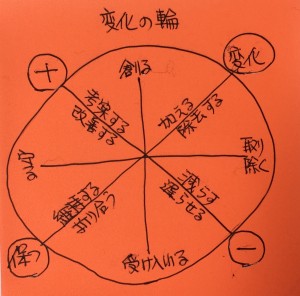 変化の輪
+
創る
変化
考案する
改善する
加える
除去する
取り
除く
維持する
折り合う
減らす
遅らせる
保つ
受け入れる
−